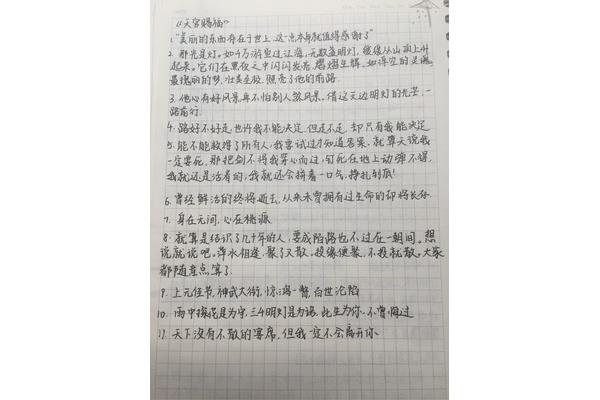 《天官赐福》
1."美丽的东西存在于世上,这一点本身就值得感谢了"
2. 那光是灯。如千万游鱼过江海,元数盏明灯,缓缓从山面上升
起来。它们在黑夜之中闪闪发亮,熠熠生辉,如浮空的灵魂,
最瑰丽的梦,壮美至极,照亮了他的前路.
3. 他心有好风景,再不怕别人煞风景。借这无边明灯的光芒,一
路前行.
4. 路好不好走,也许我不能决定,但走不走,却只有我能决定
5. 能不能救得了所有人,我要试过才知道答案,就算天说我
一定要死,那把剑不将我穿心而过,钉死在地上动弹不得,
我就还是活着的,我就还会拼着一口气,挣扎到底!
6. 曾经鲜活的终将逝去,从来未曾拥有过生命的却将长存.
7. 身在无间,心在桃源
8. 就算是结识了几十年的人,要成陌路也不过在一朝间。想
说就说吧。萍水相逢,聚了又散。投缘便聚,不投就散。大家
都随意点算了.
9. 上元佳节,神武大街,惊鸿一瞥,百世沦陷
10. 雨中探花是为守,三千明灯是为诺,此生为你,不曾悔过
11. 天下没有不散的宴席,但我一定不会离开你.